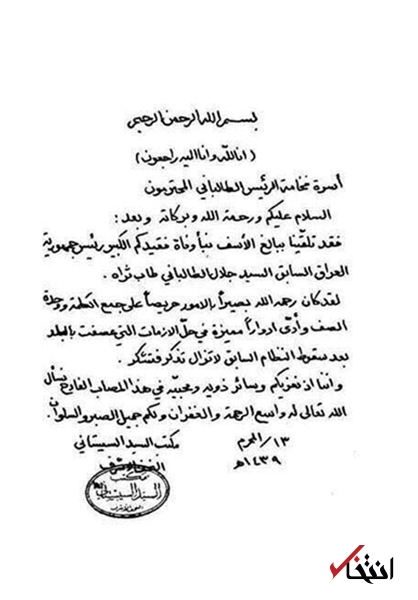 بسم الله الرحمن الرحيم
(انا لله وانا اليه راجعون)
أسرة فخامة الرئيس الطالباني المحترمون
السلام عليكم ورحمة الله وبركاته وبعد:
فقد تلقينا ببالغ الأسف نبأ وفاة فقيدكم الكبير رئيس جمهورية
العراق السابق السيد جلال الطالباني طاب ثراه.
لقد كان رحمه الله بصيراً بالامور حريصاً على جمع الكلمة ووحدة
الصف وأدّى ادواراً مميزة في حلّ الازمات التي عصفت بالبلد
بعد سقوط النظام السابق لا تزال تذكر فتشكر.
واننا اذ نعزيكم وسائر ذويه ومحبيه في هذا المصاب الفادح نسأل
الله تعالى له واسع الرحمة والغفران ولكم جميل الصبر والسلوان.
١٣/ المحرم
١٤٣٩هـ
مكتب السيد السيستاني
النجف الاشرف
مكتب
السيد السيستاني
انتخاب